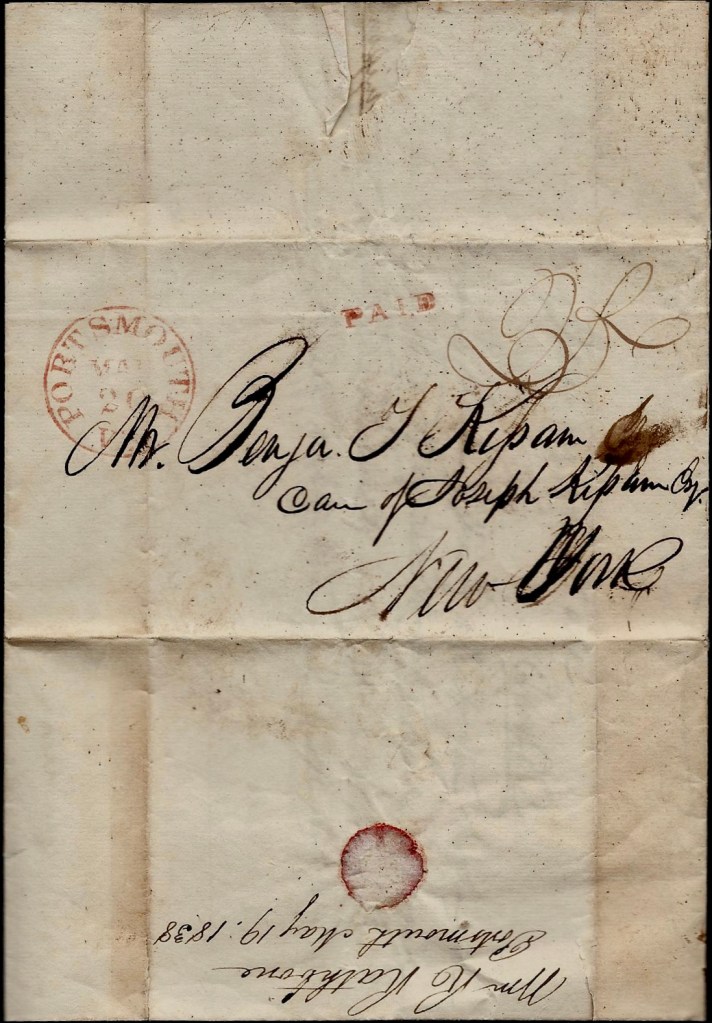 PAID
PORTSMOUTH
MAY
20
Mr. Benja. T Kissam
Care of Joseph Kissam Esq.
New York
Wm R Rathbone
Portsmouth May 19. 1838